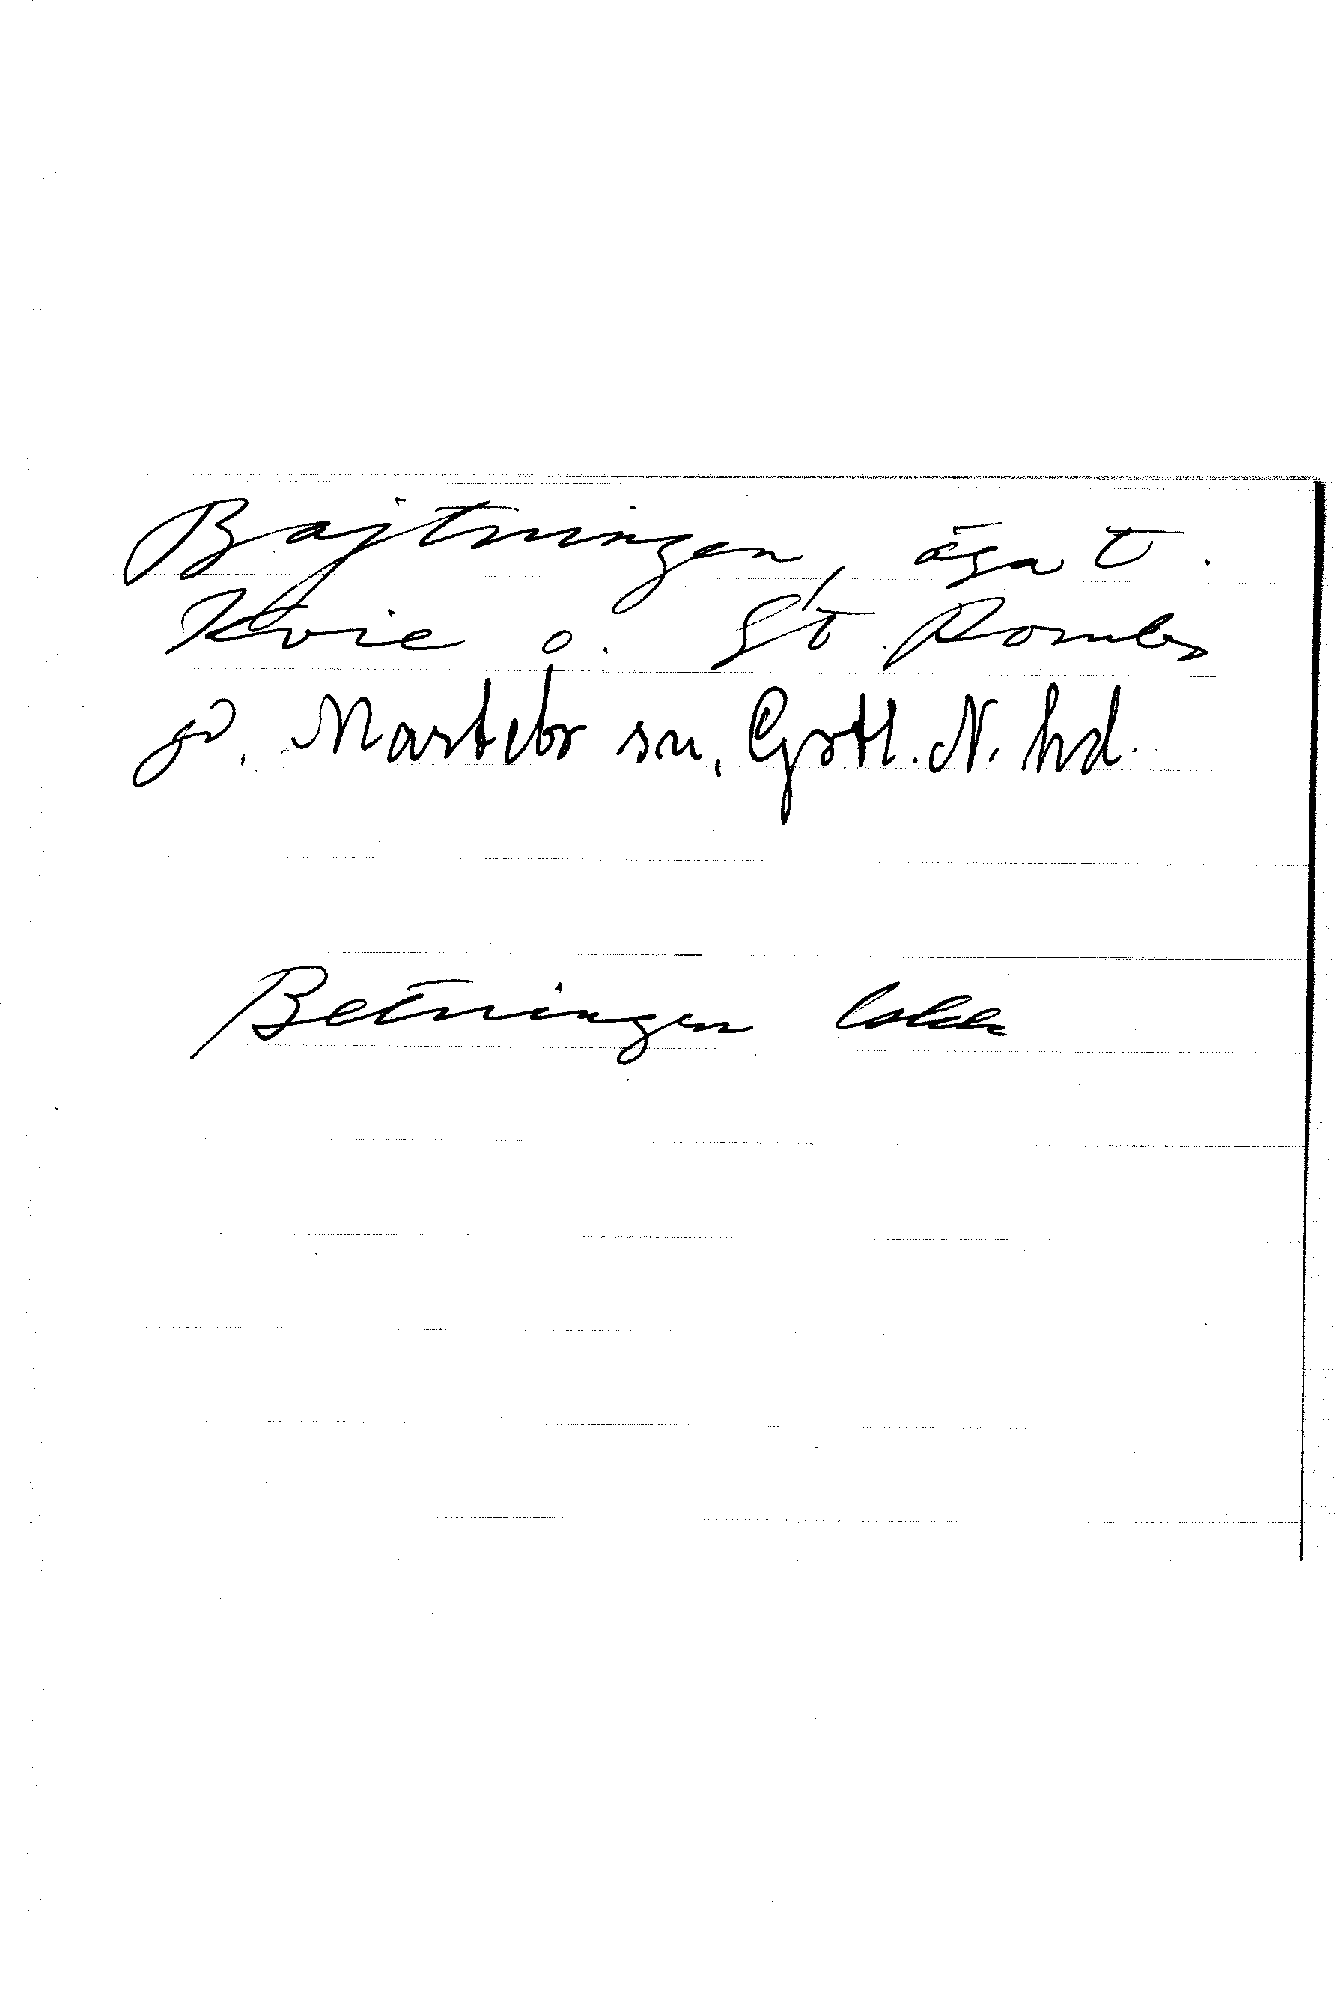 Bajtningen, äga t.
Kvie o. St Rombs
gd. Martebo sn, Gotl. N. hd.
Betningen